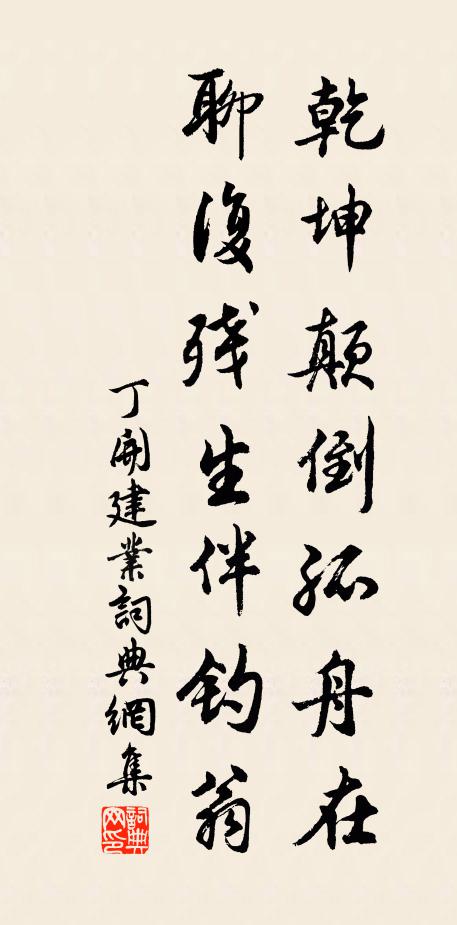 乾坤颠倒孤舟在
聊復残生伴钓翁
丁開建業詞典網集
詞典
网印